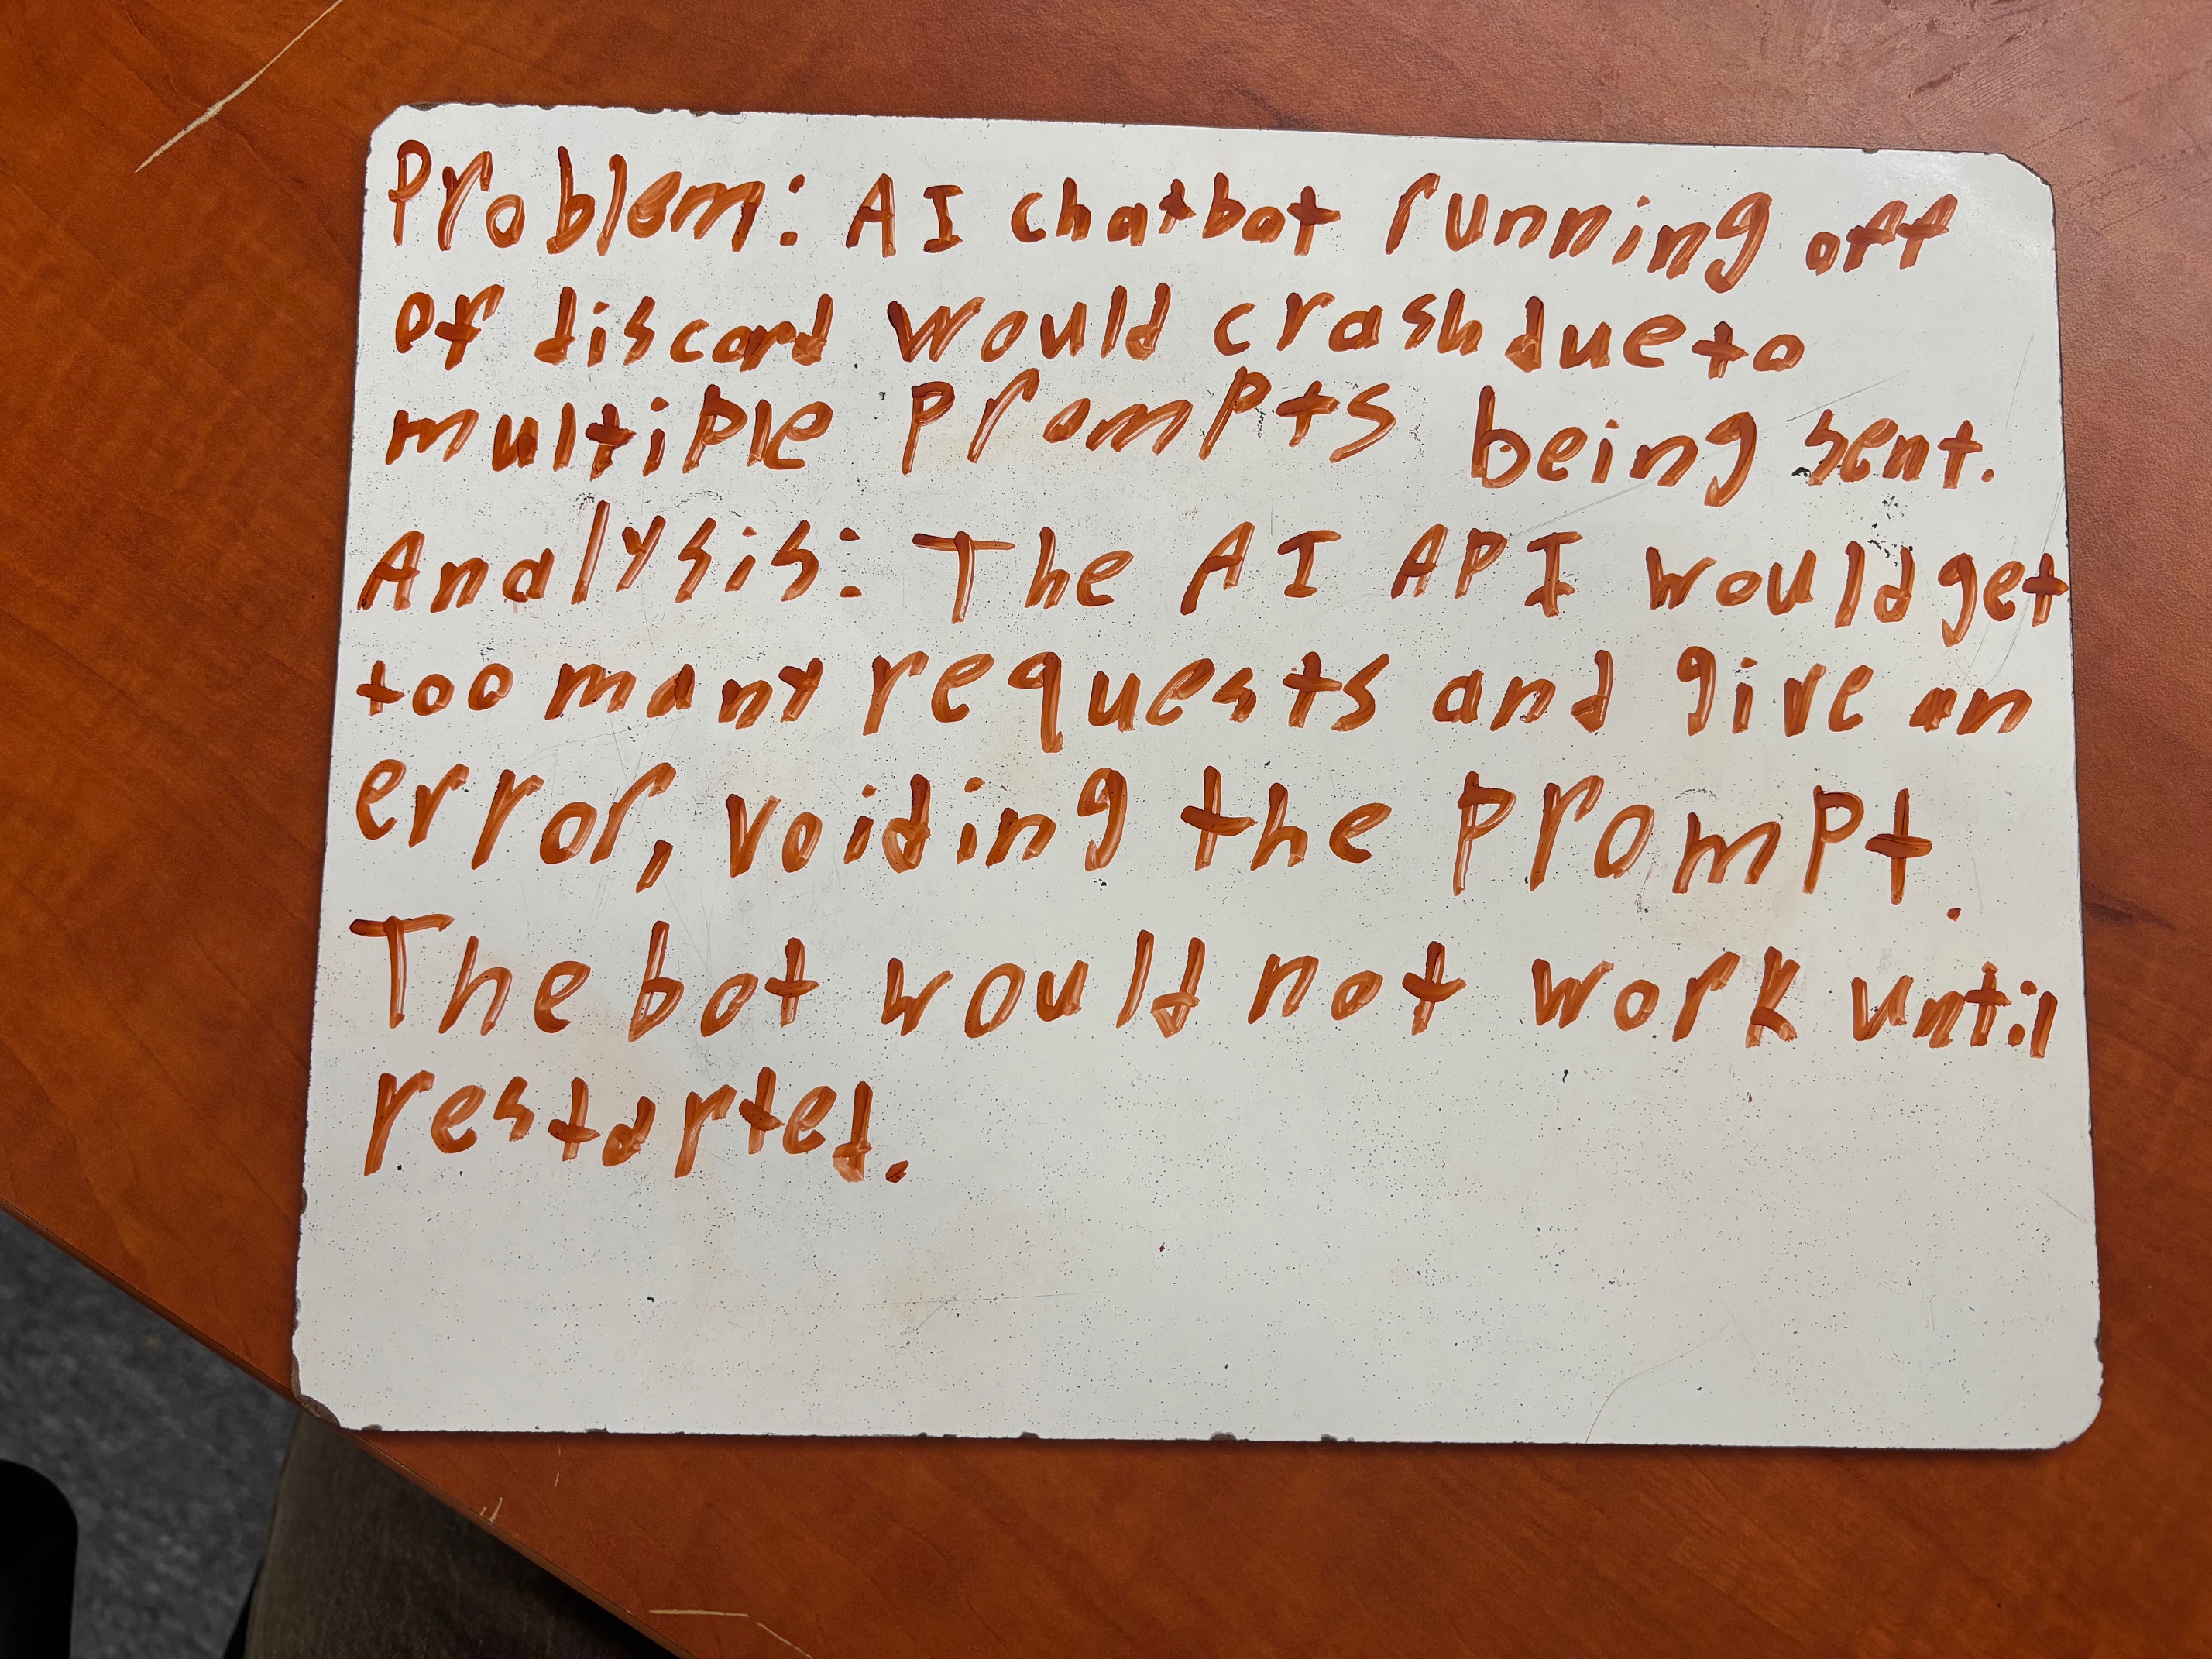 Problem: AI chatbot running off
of discord would crash due to
multiple prompts being sent.
Analysis: The AI API would get
too many requests and give an
error, voiding the prompt.
The bot would not work until
restarted.